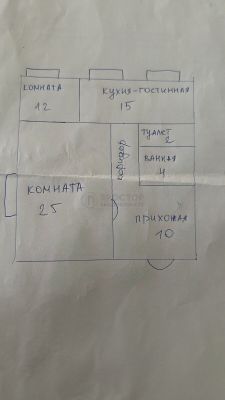 комната
12
кухня-гостинная
15
туалет
2
ванная
4
коридор
комната
25
прихожая
10